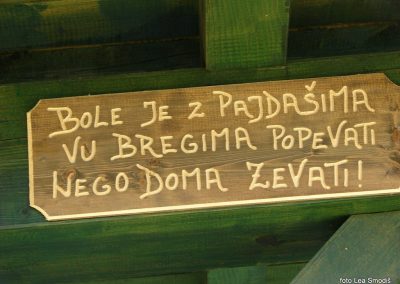 BOLE JE Z PAJDAŠIMA
VU BREGIMA POPEVATI
NEGO DOMA ZEVATI!
foto Lea Smodiš